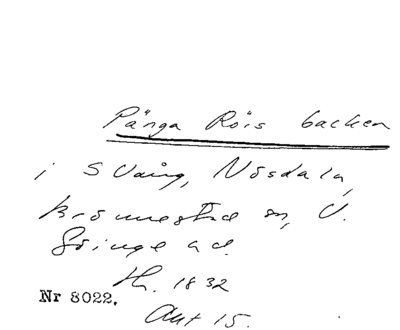 Pänga Röis backen
i S Vång, Nösdala,
Brönnestad sn, V.
Göinge hd.
th. 1832
Nr 8022.
Akt 15.